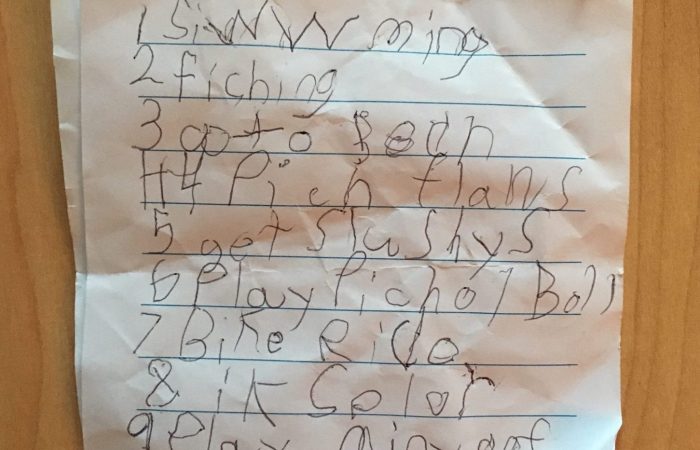 1 Siwwming
2 fiching
3 go to Bech
4 Pich flaws
5 get Slushys
6 Play Pichol Boll
7 Bike Ride
8 it Color
9 Play miny gof